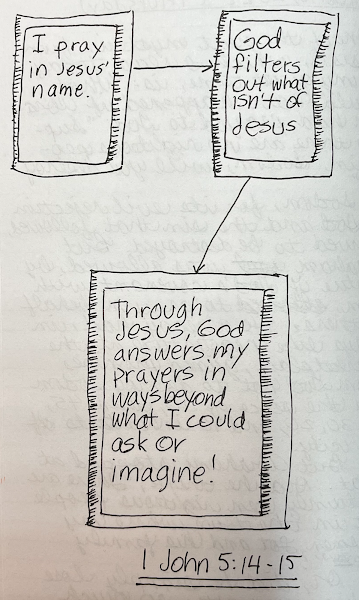 I pray
in Jesus'
name.
God
filters
out what
isn't of
Jesus
Through
Jesus, God
answers my
prayers in
ways beyond
what I could
ask or
imagine!
1 John 5:14-15